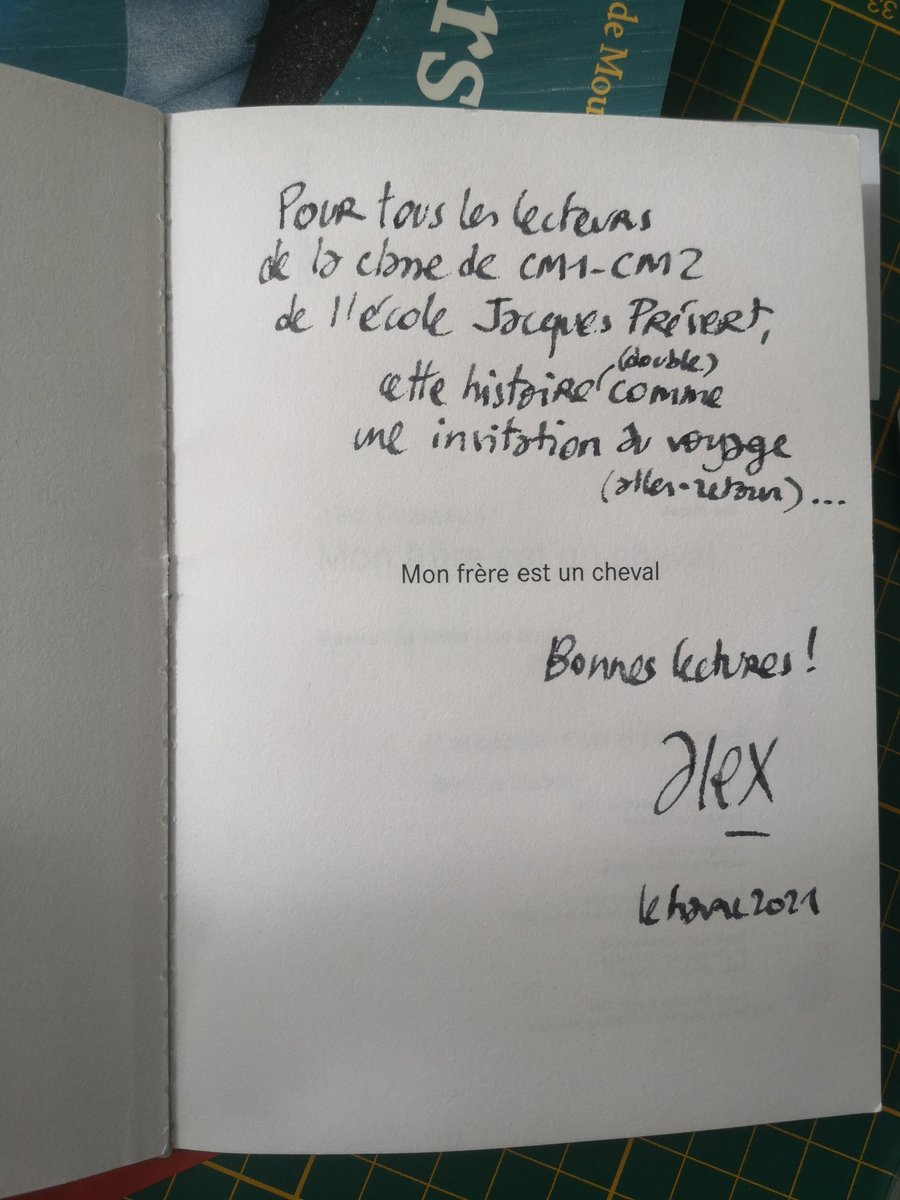 rs
de Mou
33
Pour tous les lecteurs
de la classe de CM1-CM2
de l'école Jacques Prévert,
(double)
cette histoire comme
une invitation au voyage
(aller-retour)...
Mon frère est un cheval
Bonnes lectures !
Alex
le havre 2021